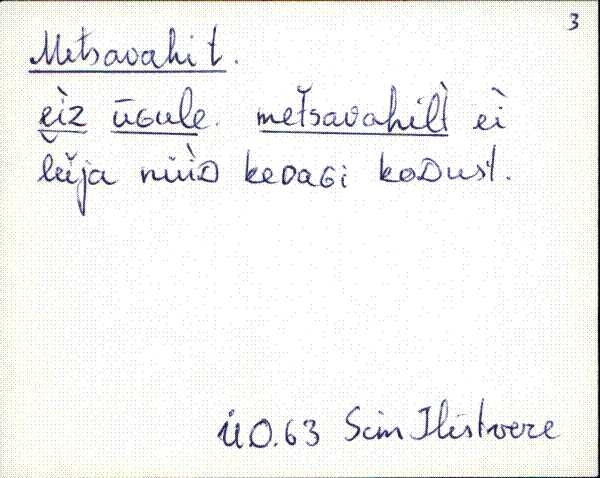 3
Metsavahit.
eìz ūGule. metšavahilt̀ eì
leìja nüìD keDaGi koDust.
Ü.O.63 Sim Ilistvere